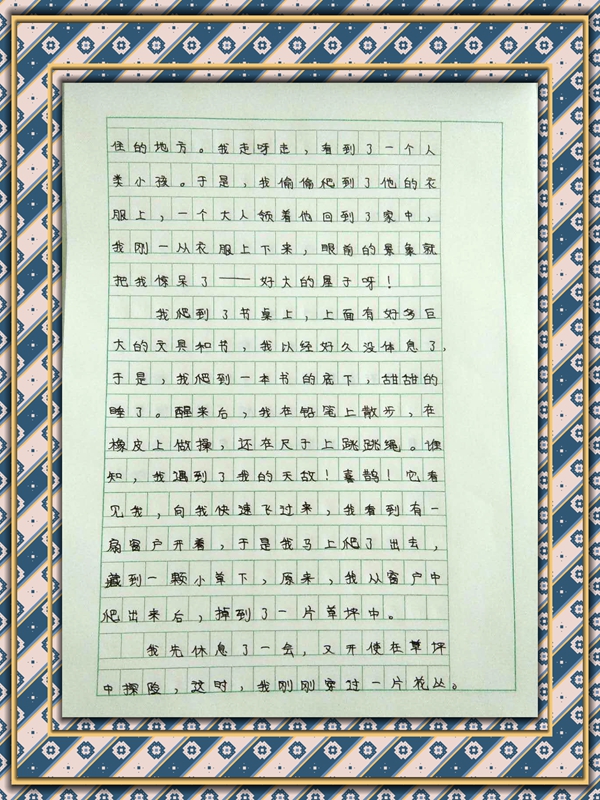 住的地方。我走呀走，看到了一个人
类小孩。于是，我偷偷爬到了他的衣
服上，一个大人领着他回到了家中，
我刚一从衣服上下来，眼前的景象就
把我惊呆了——好大的屋子呀！
我爬到了书桌上，上面有好多巨
大的文具和书，我以经好久没体息了，
于是，我爬到一本书的底下，甜甜的
睡了。醒来后，我在铅笔上散步，在
橡皮上做操，还在尺子上跳跳绳。谁
知，我遇到了我的天敌！喜鹊！它看
见我，向我快速飞过来，我看到有一
扇窗户开着，于是我马上爬了出去，
藏到一颗小草下，原来，我从窗户中
爬出来后，掉到了一片草坪中。
我先休息了一会，又开使在草坪
中探险，这时，我刚刚穿过一片花丛。